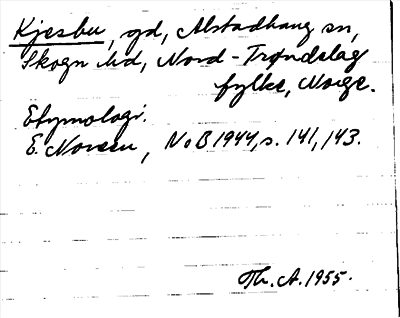 Kjesbu, gd, Alstadhaug sn,
Skogn hd, Nord-Trøndelag
fylke, Norge.
Etymologi.
E. Noreen, NoB 1944, s. 141, 143.
Th. A. 1955.